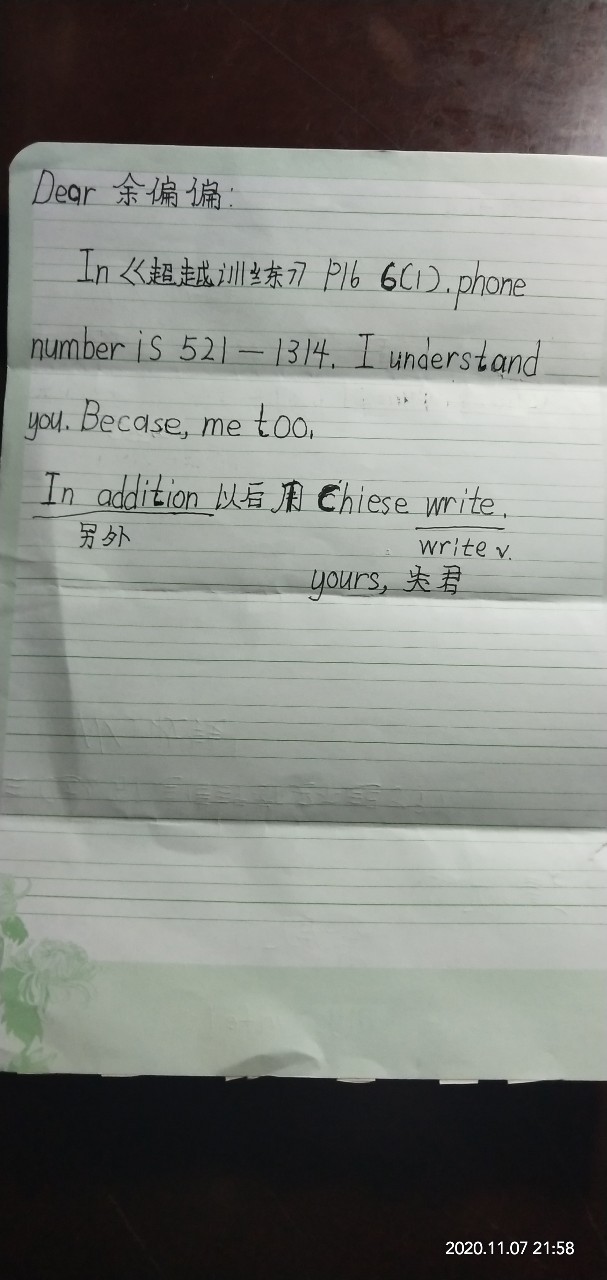 Dear 余偏偏:
In 《超越训练》 P16 6(1). phone
number is 521—1314. I understand
you. Becase, me too.
In addition 以后用 Chiese write.
另外
write v.
yours, 失君
2020.11.07 21:58